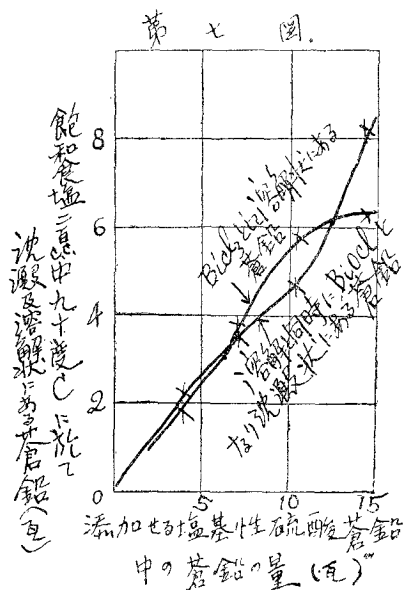 第七図.
飽和食塩二立中九十度Cに於て
沈澱及溶解状にある蒼鉛(瓦)
8
6
4
2
0
5
10
15
BiCl3として溶解状にある
蒼鉛
溶解と同時にBiOClと
なり沈澱状にある蒼鉛
添加せる塩基性硫酸蒼鉛
中の蒼鉛の量(瓦)